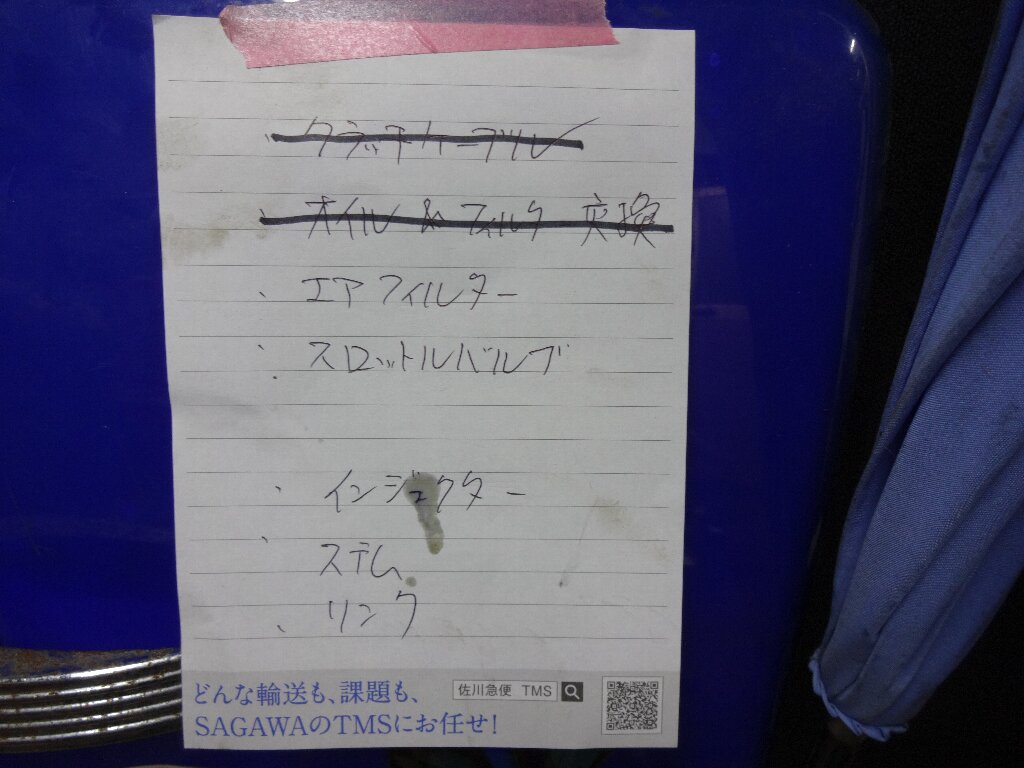 、クラッチケーブル
、オイル & フィルタ 交換
、エアフィルター
、スロットルバルブ
、インジェクター
、ステム
、リンク
どんな輸送も、課題も、
佐川急便 TMS
SAGAWAのTMSにお任せ!